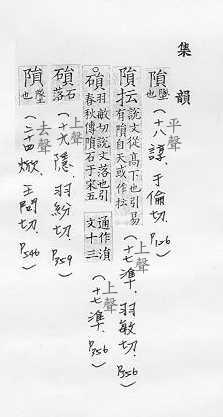 集韻
隕墜也 平聲(十八諄.于倫切.P126
隕抎說文從高下也引易有隕自天或作抎 上聲(十七準.羽敏切.P356
磒羽敏切說文落也引春秋傳磒石于宋五 通作湏文十三 上聲(十七準.P356
磒石落 上聲(十九隱.羽紛切.P359
隕墜也 去聲(二十四焮.王問切.P546